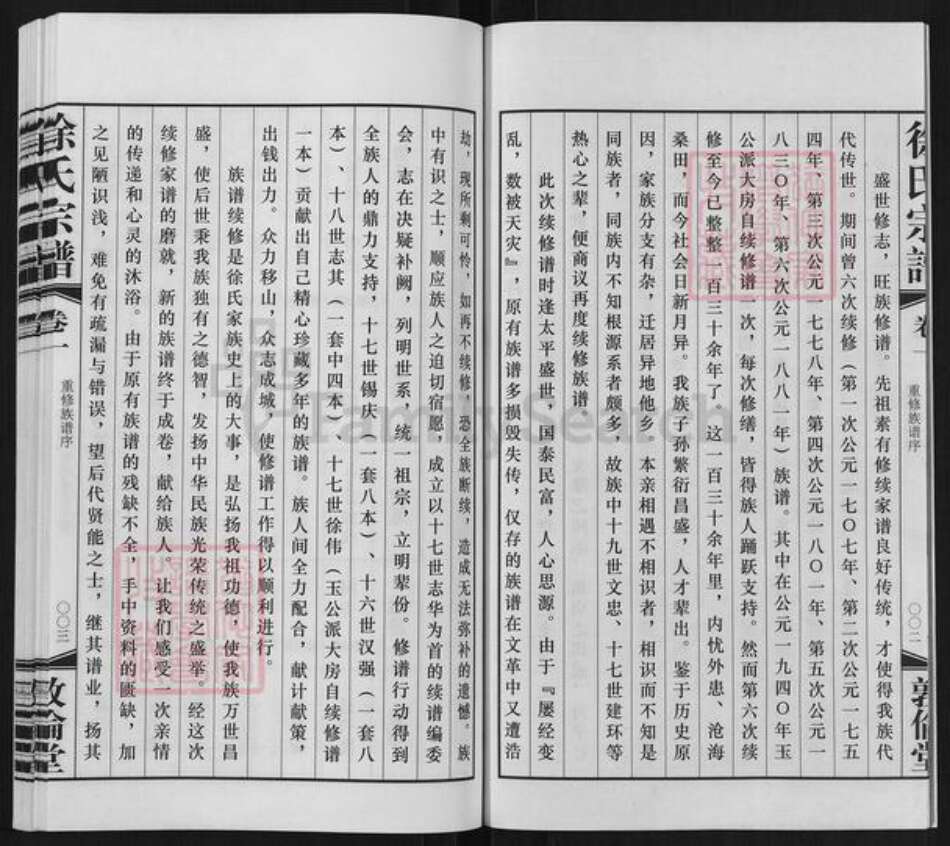 徐氏宗譜
卷一
重修族谱序
〇〇二
敦倫堂
盛世修志，旺族修谱。先祖素有修续家谱良好传统，才使得我族代
代传世。期间曾六次续修（第一次公元一七〇七年、第二次公元一七五
四年、第三次公元一七七八年、第四次公元一八〇一年、第五次公元一
八三〇年、第六次公元一八八一年）族谱。其中在公元一九四〇年玉
公派大房自续修谱一次，每次修缮，皆得族人踊跃支持。然而第六次续
修至今已整整一百三十余年了，这一百三十余年里，内忧外患、沧海
桑田，而今社会日新月异。我族子孙繁衍昌盛，人才辈出。鉴于历史原
因，家族分支有杂，迁居异地他乡，本亲相遇不相识者，相识而不知是
同族者，同族内不知根源系者颇多，故族中十九世文忠、十七世建环等
热心之辈，便商议再度续修族谱
此次续修谱时逢太平盛世，国泰民富，人心思源。由于『屡经变
乱，数被天灾』，原有族谱多损毁失传，仅存的族谱在文革中又遭浩
劫，现所剩可怜，如再不续修，恐全族断续，造成无法弥补的遗憾。族
中有识之士，顺应族人之迫切宿愿，成立以十七世志华为首的续谱编委
会，志在决疑补阙，列明世系，统一祖宗，立明辈份。修谱行动得到
全族人的鼎力支持，十七世锡庆（一套八本）、十六世汉强（一套八
本）、十八世志其（一套中四本）、十七世徐伟（玉公派大房自续修谱
一本）贡献出自己精心珍藏多年的族谱。族人间全力配合，献计献策，
出钱出力。众力移山，众志成城，使修谱工作得以顺利进行。
族谱续修是徐氏家族史上的大事，是弘扬我祖功德，使我族万世昌
盛，使后世秉我族独有之德智，发扬中华民族光荣传统之盛举。经这次
续修家谱的磨就，新的族谱终于成卷，献给族人。让我们感受一次亲情
的传递和心灵的沐浴。由于原有族谱的残缺不全，手中资料的匮缺，加
之见陋识浅，难免有疏漏与错误，望后代贤能之士，继其谱业，扬其
徐氏宗譜
卷一
重修族谱序
〇〇三
敦倫堂
FamilySearch